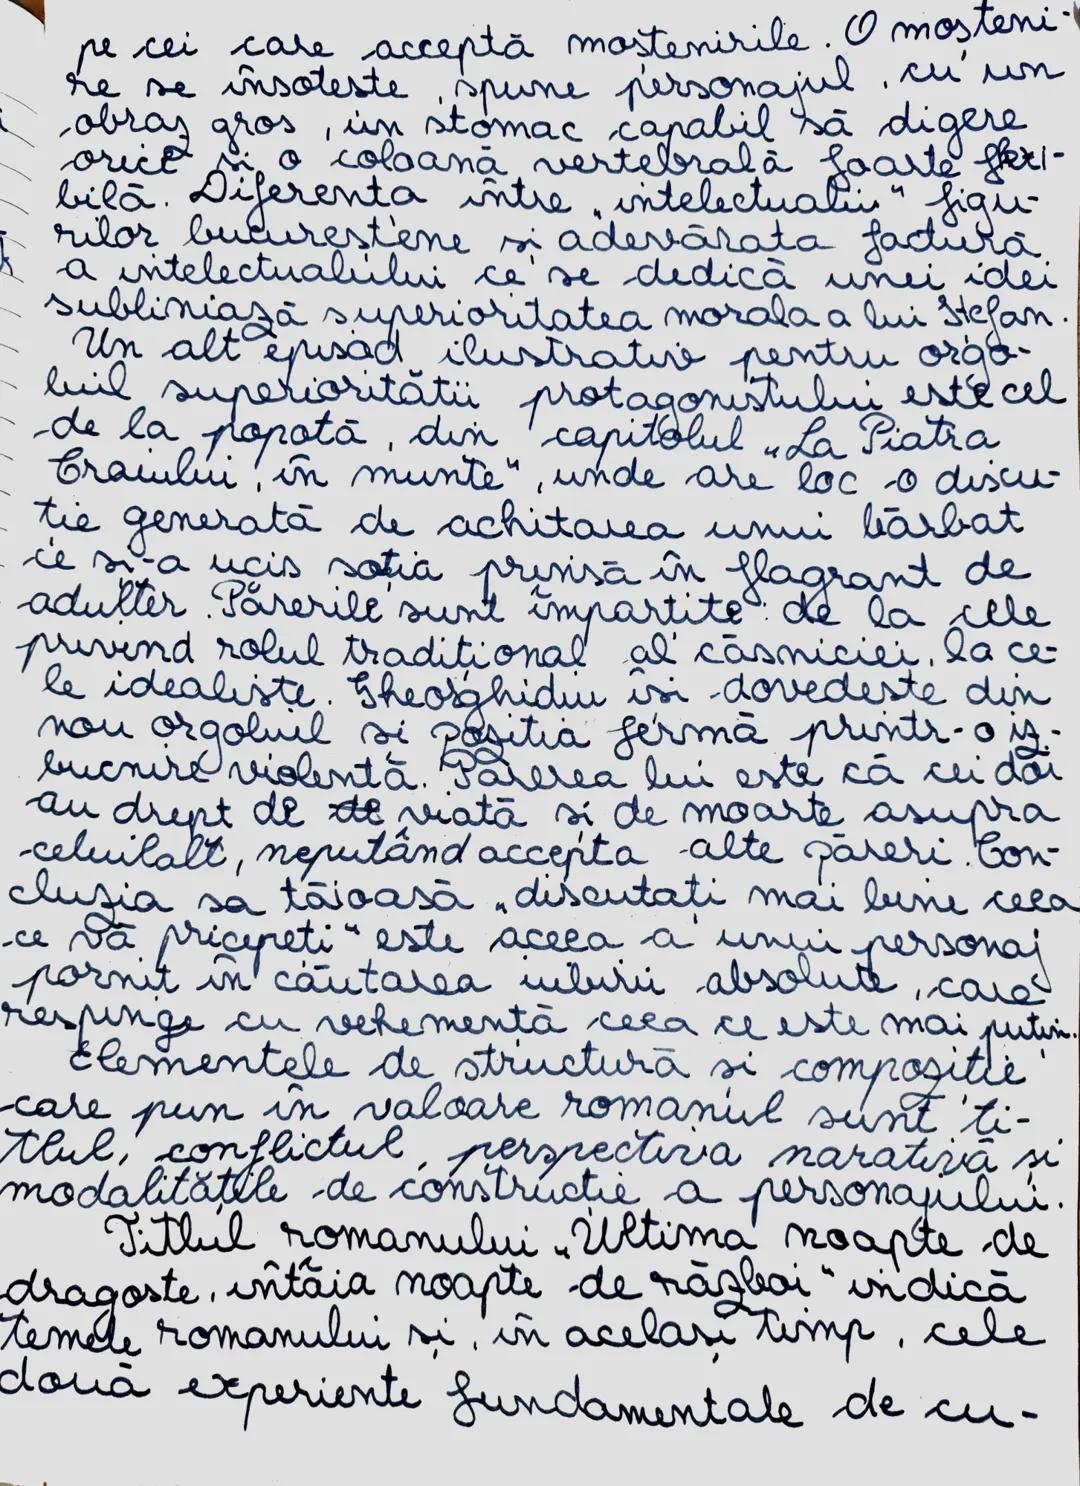 pe cei care acceptă moștenirile. O moșteni-
re se însoțește, spune personajul, cu un
obraz gros, un stomac capabil să digere
orice și o coloană vertebrală foarte flexi-
bilă. Diferența între „intelectualii" figu-
rilor bucureștene și adevărata factură
a intelectualului ce se dedică unei idei
subliniază superioritatea morala a lui Stefan.
Un alt episod ilustrativ pentru orgo-
liul superiorității protagonistului este cel
de la popotă, din capitolul „La Piatra
Craiului, în munte", unde are loc o discu-
ție generată de achitarea unui bărbat
ce și-a ucis soția prinsă în flagrant de
adulter. Părerile sunt împărțite: de la cele
privind rolul tradițional al căsniciei, la ce-
le idealiste. Gheorghidiu își dovedește din
nou orgoliul și poziția fermă printr-o iz-
bucnire violentă. Părerea lui este că cei doi
au drept de viață și de moarte asupra
celuilalt, neputând accepta alte păreri. Con-
cluzia sa tăioasă „discutați mai bine ceea
ce vă pricepeți" este aceea a unui personaj
pornit în căutarea iubirii absolute, care
respinge cu vehemență ceea ce este mai puțin.
Elementele de structură și compoziție
care pun în valoare romanul sunt ti-
tlul, conflictul, perspectiva narativă și
modalitățile de construcție a personajului.
Titlul romanului „Ultima noapte de
dragoste, întâia noapte de război" indică
temele romanului și, în același timp, cele
două experiențe fundamentale de cu-